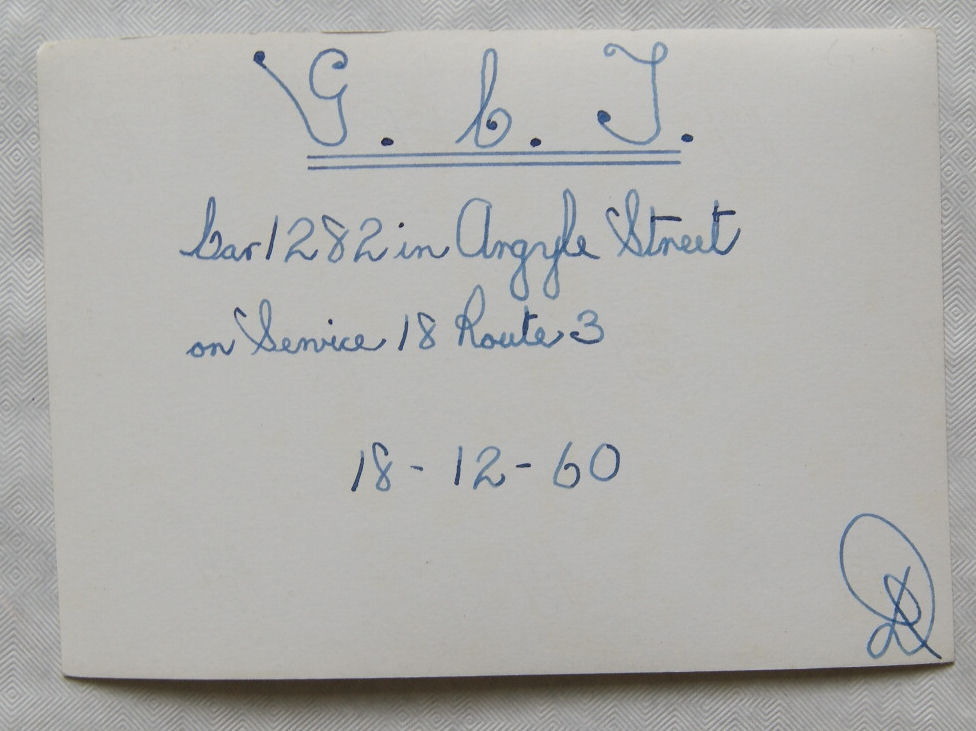 G. C. T.
Car 1282 in Argyle Street
on Service 18 Route 3
18-12-60